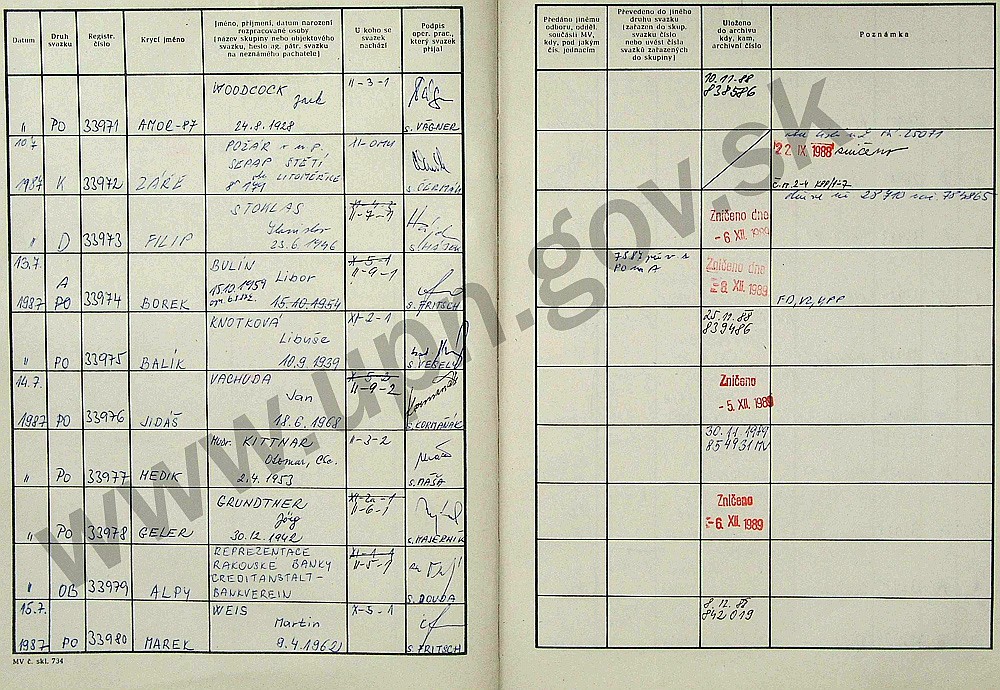 Datum
Druh svazku
Registr. číslo
Krycí jméno
Jméno, příjmení, datum narození
rozpracované osoby
(název skupiny nebo objektového
svazku, heslo ag. pátr. svazku
na neznámého pachatele)
U koho se
svazek
nachází
Podpis
oper. prac.,
který svazek
přijal
Předáno jinému
odboru, odděl.
součásti MV,
kdy, pod jakým
čís. jednacím
Převedeno do jiného
druhu svazku
(zařazen do skup.
svazku číslo
nebo uvést čísla
svazků zařazených
do skupiny)
Uloženo
do archivu
kdy, kam,
archivní číslo
Poznámka
WOODCOCK II-3-1
" PO 33971 AMOR-87 24.8.1928 s. VÁGNER
10.11.88
838586
10.7. POŽÁR v n.p. II-OMU
SEPAP ŠTĚTÍ
1987 K 33972 ZÁŘE LITOMĚŘICE s. ČERMÁK
22. IX. 1988 zničeno
STOHLAS XI-4-3
II-7-1
" D 33973 FILIP 23.6.1946
28710 754865
Zničeno dne
- 6. XII. 1989
13.7. BULÍN X-5-1
A 15.10.1959 Libor II-9-1
1987 PO 33974 BOREK 15.10.1954 s. FRITSCH
PO na A
Zničeno dne
- 8. XII. 1989
KNOTKOVÁ XI-2-1
Libuše
" PO 33975 BALÍK 10.9.1939 s. VESELÝ
25.11.88
839486
14.7. VACHUDA X-5-2
Jan II-9-2
1987 PO 33976 JIDÁŠ 18.6.1968 s. KORMAŇÁK
Zničeno
- 5. XII. 1989
MUDr. KITTNAR II-3-2
Otomar, CSc.
" PO 33977 MEDIK 2.4.1953 s. MAŠA
30.11.1989
854931 MV
GRUNDTNER XI-2a-1
Jörg II-6-1
" PO 33978 GELER 30.12.1942 s. MAJERNIK
Zničeno
- 6. XII. 1989
REPREZENTACE XI-1-1
RAKOUSKÉ BANKY II-5-1
CREDITANSTALT-
" OB 33979 ALPY BANKVEREIN s. DOUDA
15.7. WEIS X-5-1
Martin
1987 PO 33980 MAREK 9.4.1962 s. FRITSCH
8.12.88
842019
MV č. skl. 734
www.upn.gov.sk